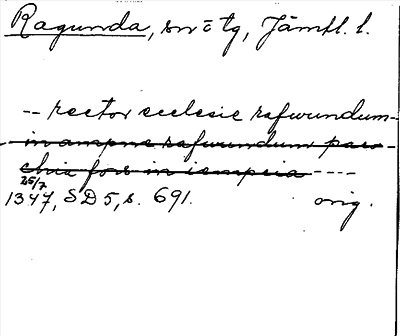 Ragunda, sn o tg, Jämtl. l.
-- rector ecclesie rafwundum-
- in ampne rafwundum paro-
chia fors in iempcia ----
25/7
1347, SD 5, s. 691. orig.